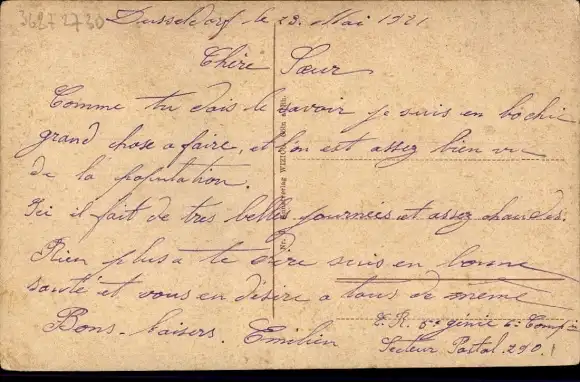 36872730
Dusseldorf le 23 Mai 1921
Chère Sœur
Comme tu dois le savoir je suis en bochie
grand chose a faire, et l'on est assez bien vu
de la population.
Ici il fait de très belles journées et assez chaudes.
Rien plus a te dire suis en bonne
santé et vous en désire a tous de même
Bons baisers. Emilien
5e génie 6e Comp
Secteur Postal. 290.